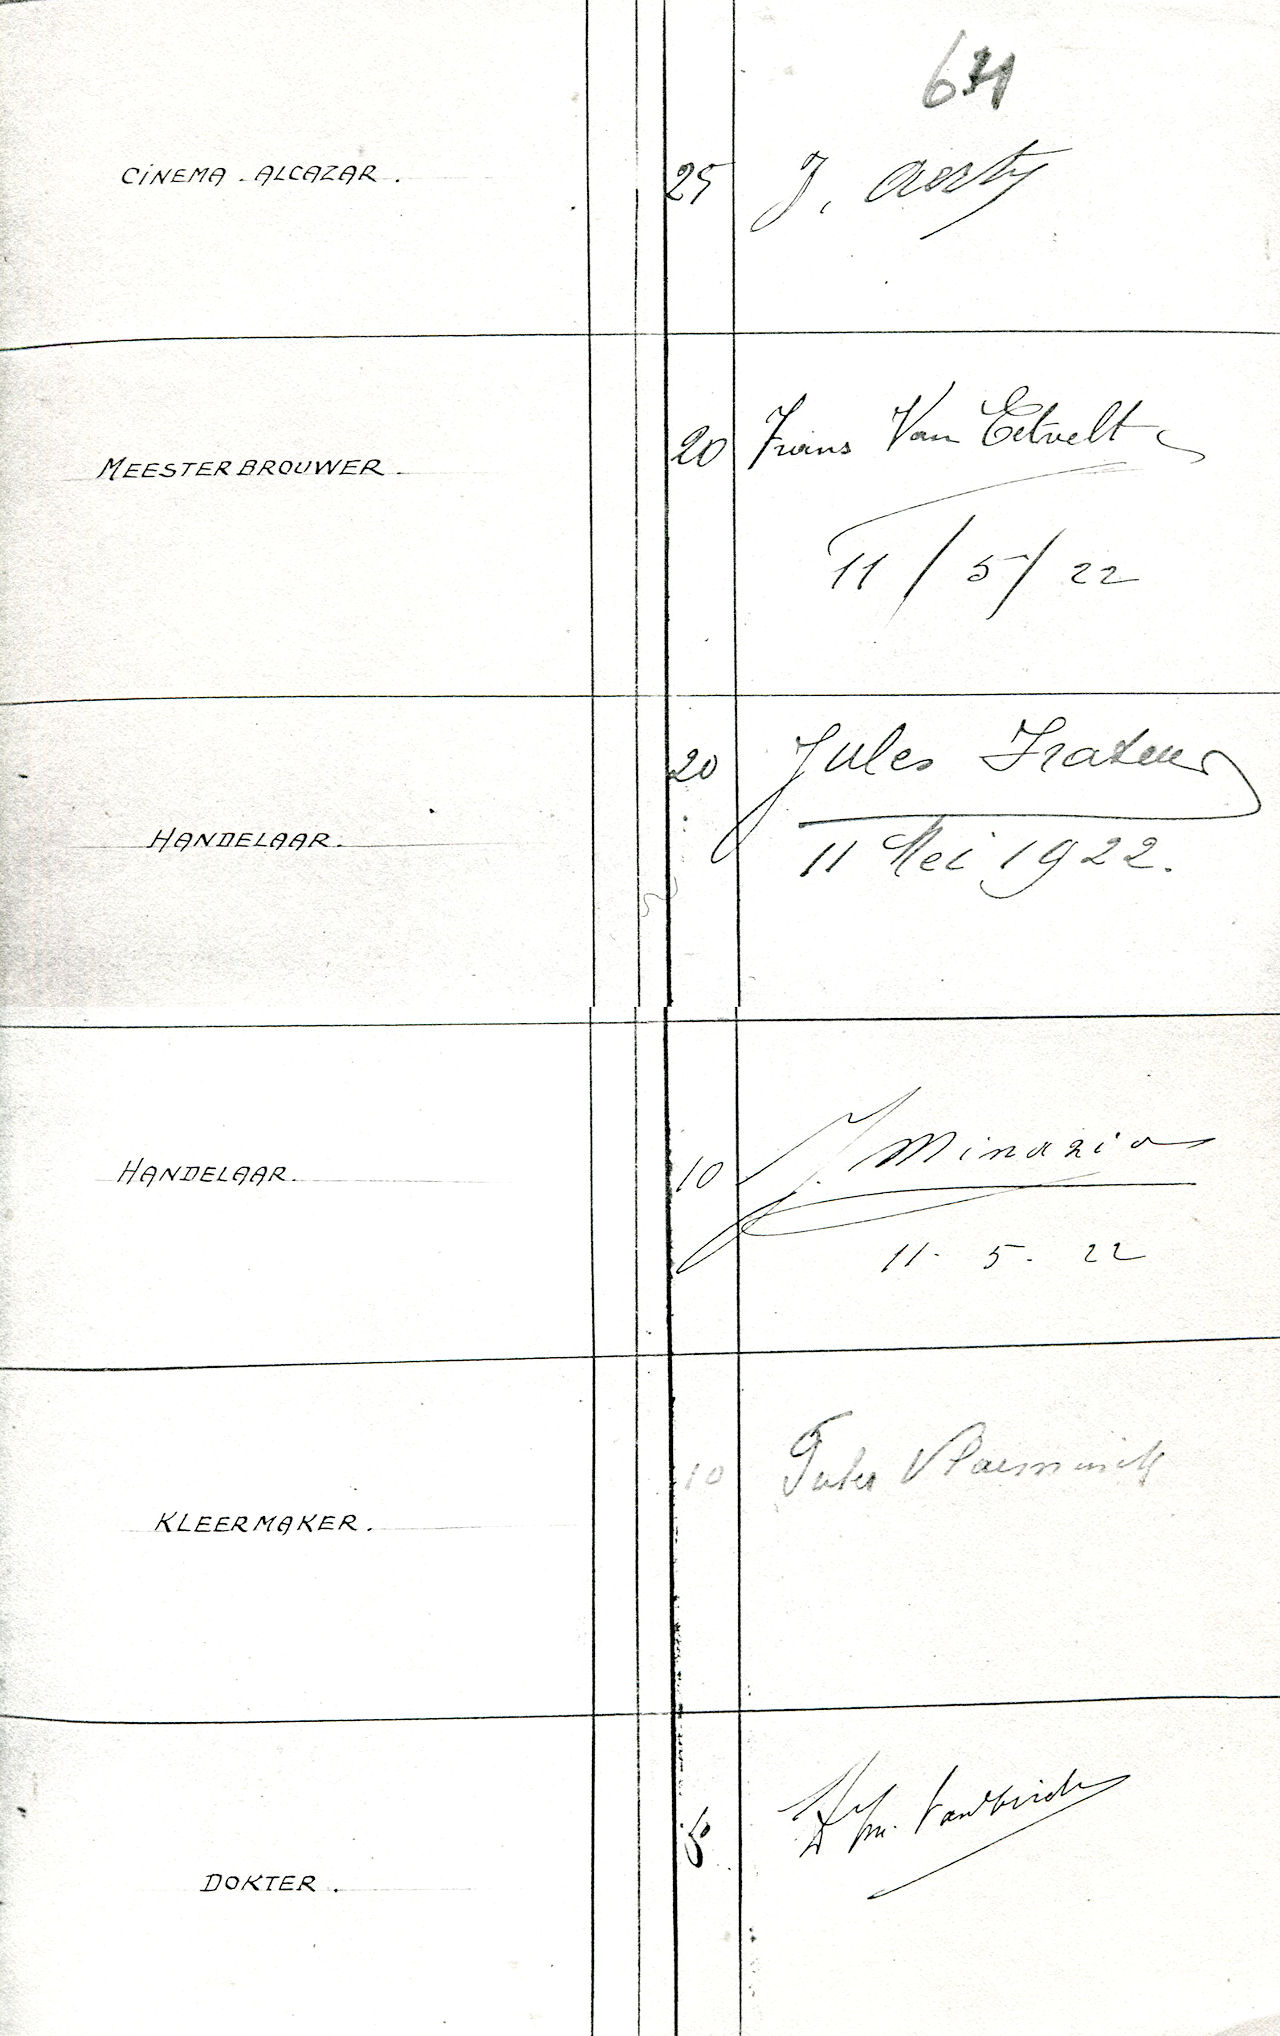 CINEMA - ALCAZAR. 25 J. Aerts
MEESTERBROUWER. 20 Frans Van Eetvelt
11/5/22
HANDELAAR. 20 Jules Frateur
11 Mei 1922.
HANDELAAR. 10 J. Minazio
11. 5. 22
KLEERMAKER. 10 Jules Vlaeminck
DOKTER.